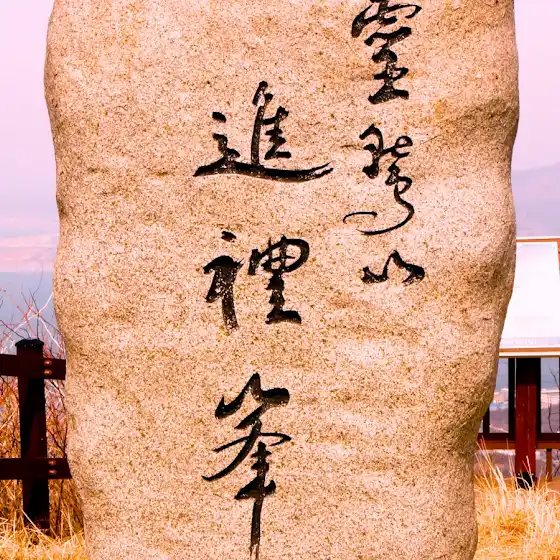 靈鷲山
進禮峯